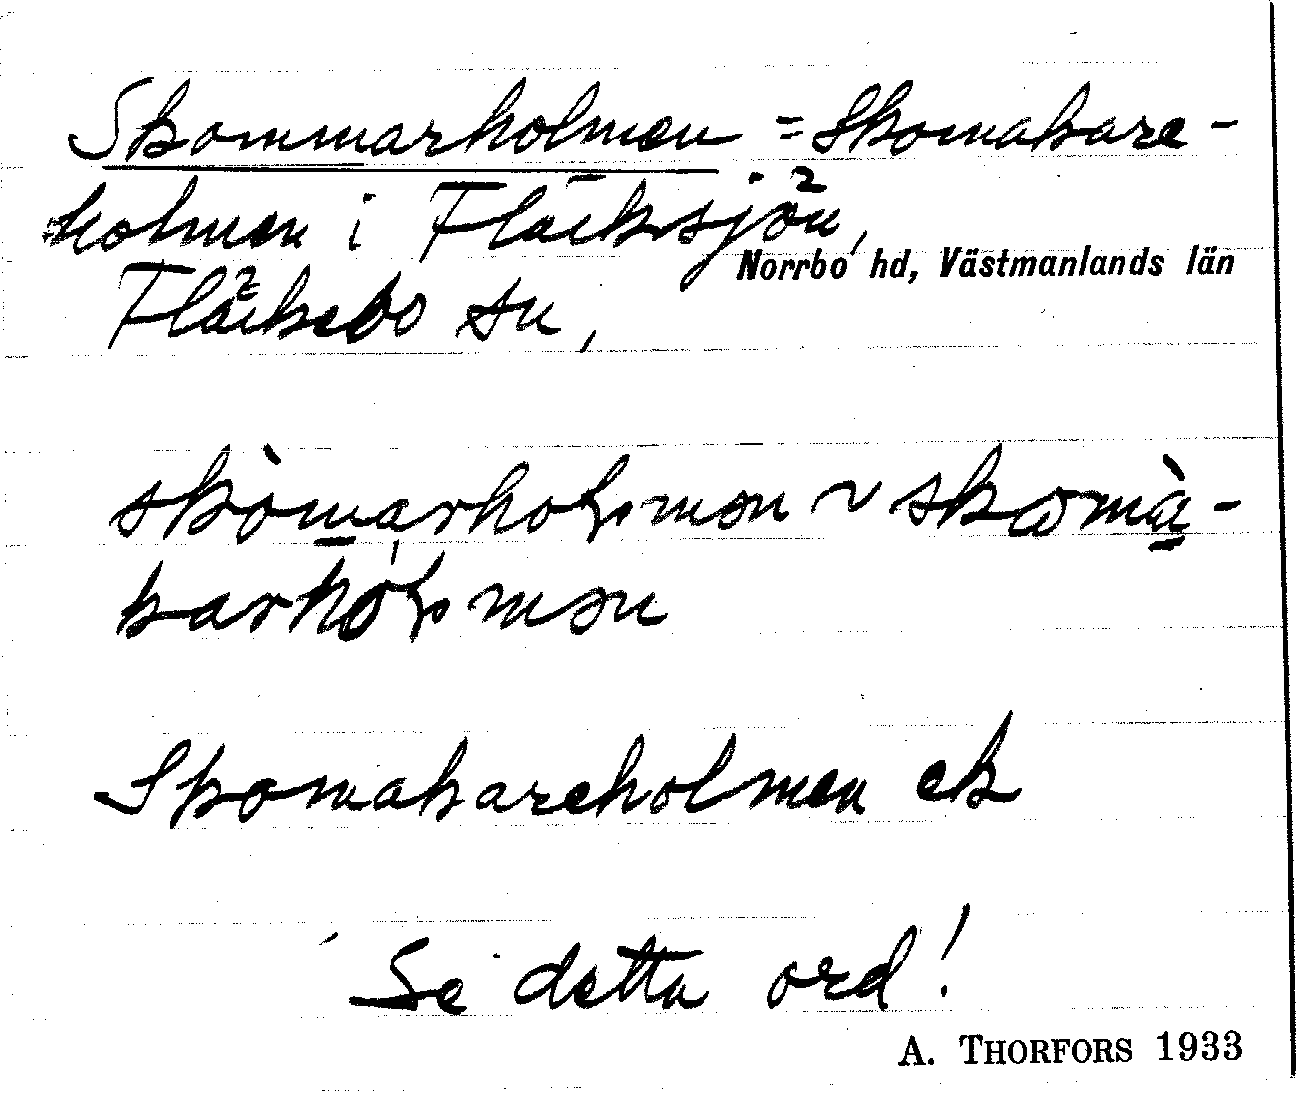 Skommarholmen = Skomakare-
holmen i Fläcksjön,
Norrbo hd, Västmanlands län
Fläckebo sn,
skòmarholmen ~ skomà-
karhólmen
Skomakareholmen ek
Se detta ord!
A. THORFORS 1933